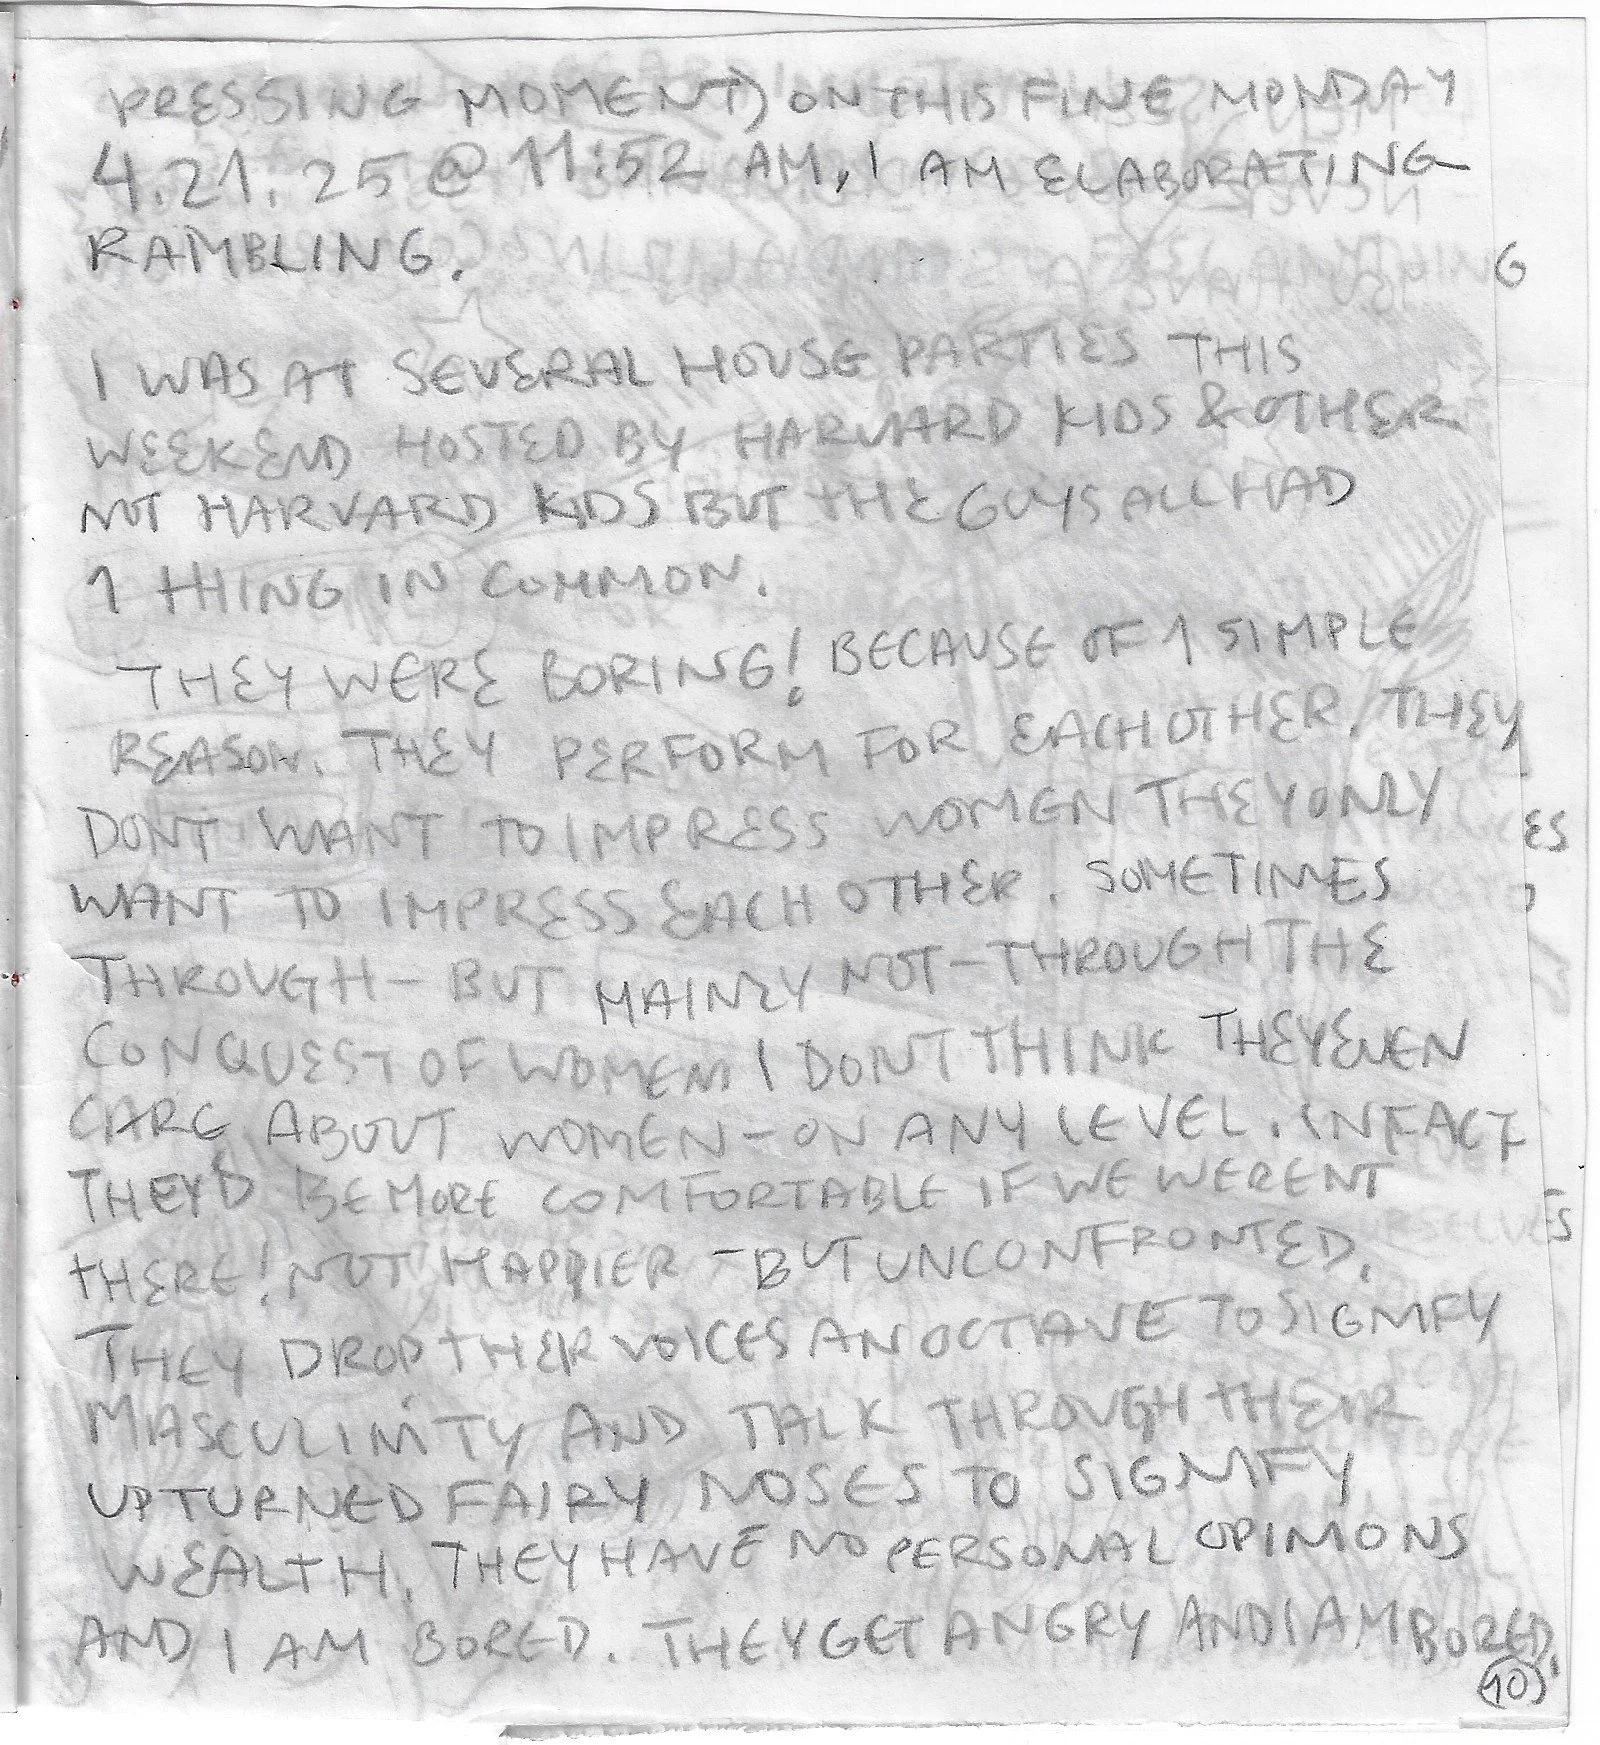 PRESSING MOMENT) ON THIS FINE MONDAY
4.21.25 @ 11:52 AM, I AM ELABORATING
RAMBLING.
I WAS AT SEVERAL HOUSE PARTIES THIS
WEEKEND HOSTED BY HARVARD KIDS & OTHER
NOT HARVARD KIDS BUT THE GUYS ALL HAD
1 THING IN COMMON.
THEY WERE BORING! BECAUSE OF 1 SIMPLE
REASON. THEY PERFORM FOR EACHOTHER. THEY
DONT WANT TO IMPRESS WOMEN THEY ONLY
WANT TO IMPRESS EACH OTHER. SOMETIMES
THROUGH - BUT MAINLY NOT - THROUGH THE
CONQUEST OF WOMEN I DONT THINK THEY EVEN
CARE ABOUT WOMEN - ON ANY LEVEL. IN FACT
THEY'D BE MORE COMFORTABLE IF WE WERENT
THERE! NOT HAPPIER - BUT UNCONFRONTED.
THEY DROP THEIR VOICES AN OCTAVE TO SIGNIFY
MASCULINITY AND TALK THROUGH THEIR
UPTURNED FAIRY NOSES TO SIGNIFY
WEALTH. THEY HAVE NO PERSONAL OPINIONS
AND I AM BORED. THEY GET ANGRY AND I AM BORED.
10